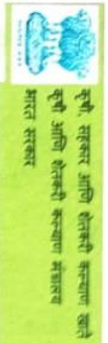 कृषी, सहकार आणि शेतकरी कल्याण खाते
कृषी आणि शेतकरी कल्याण मंत्रालय
भारत सरकार